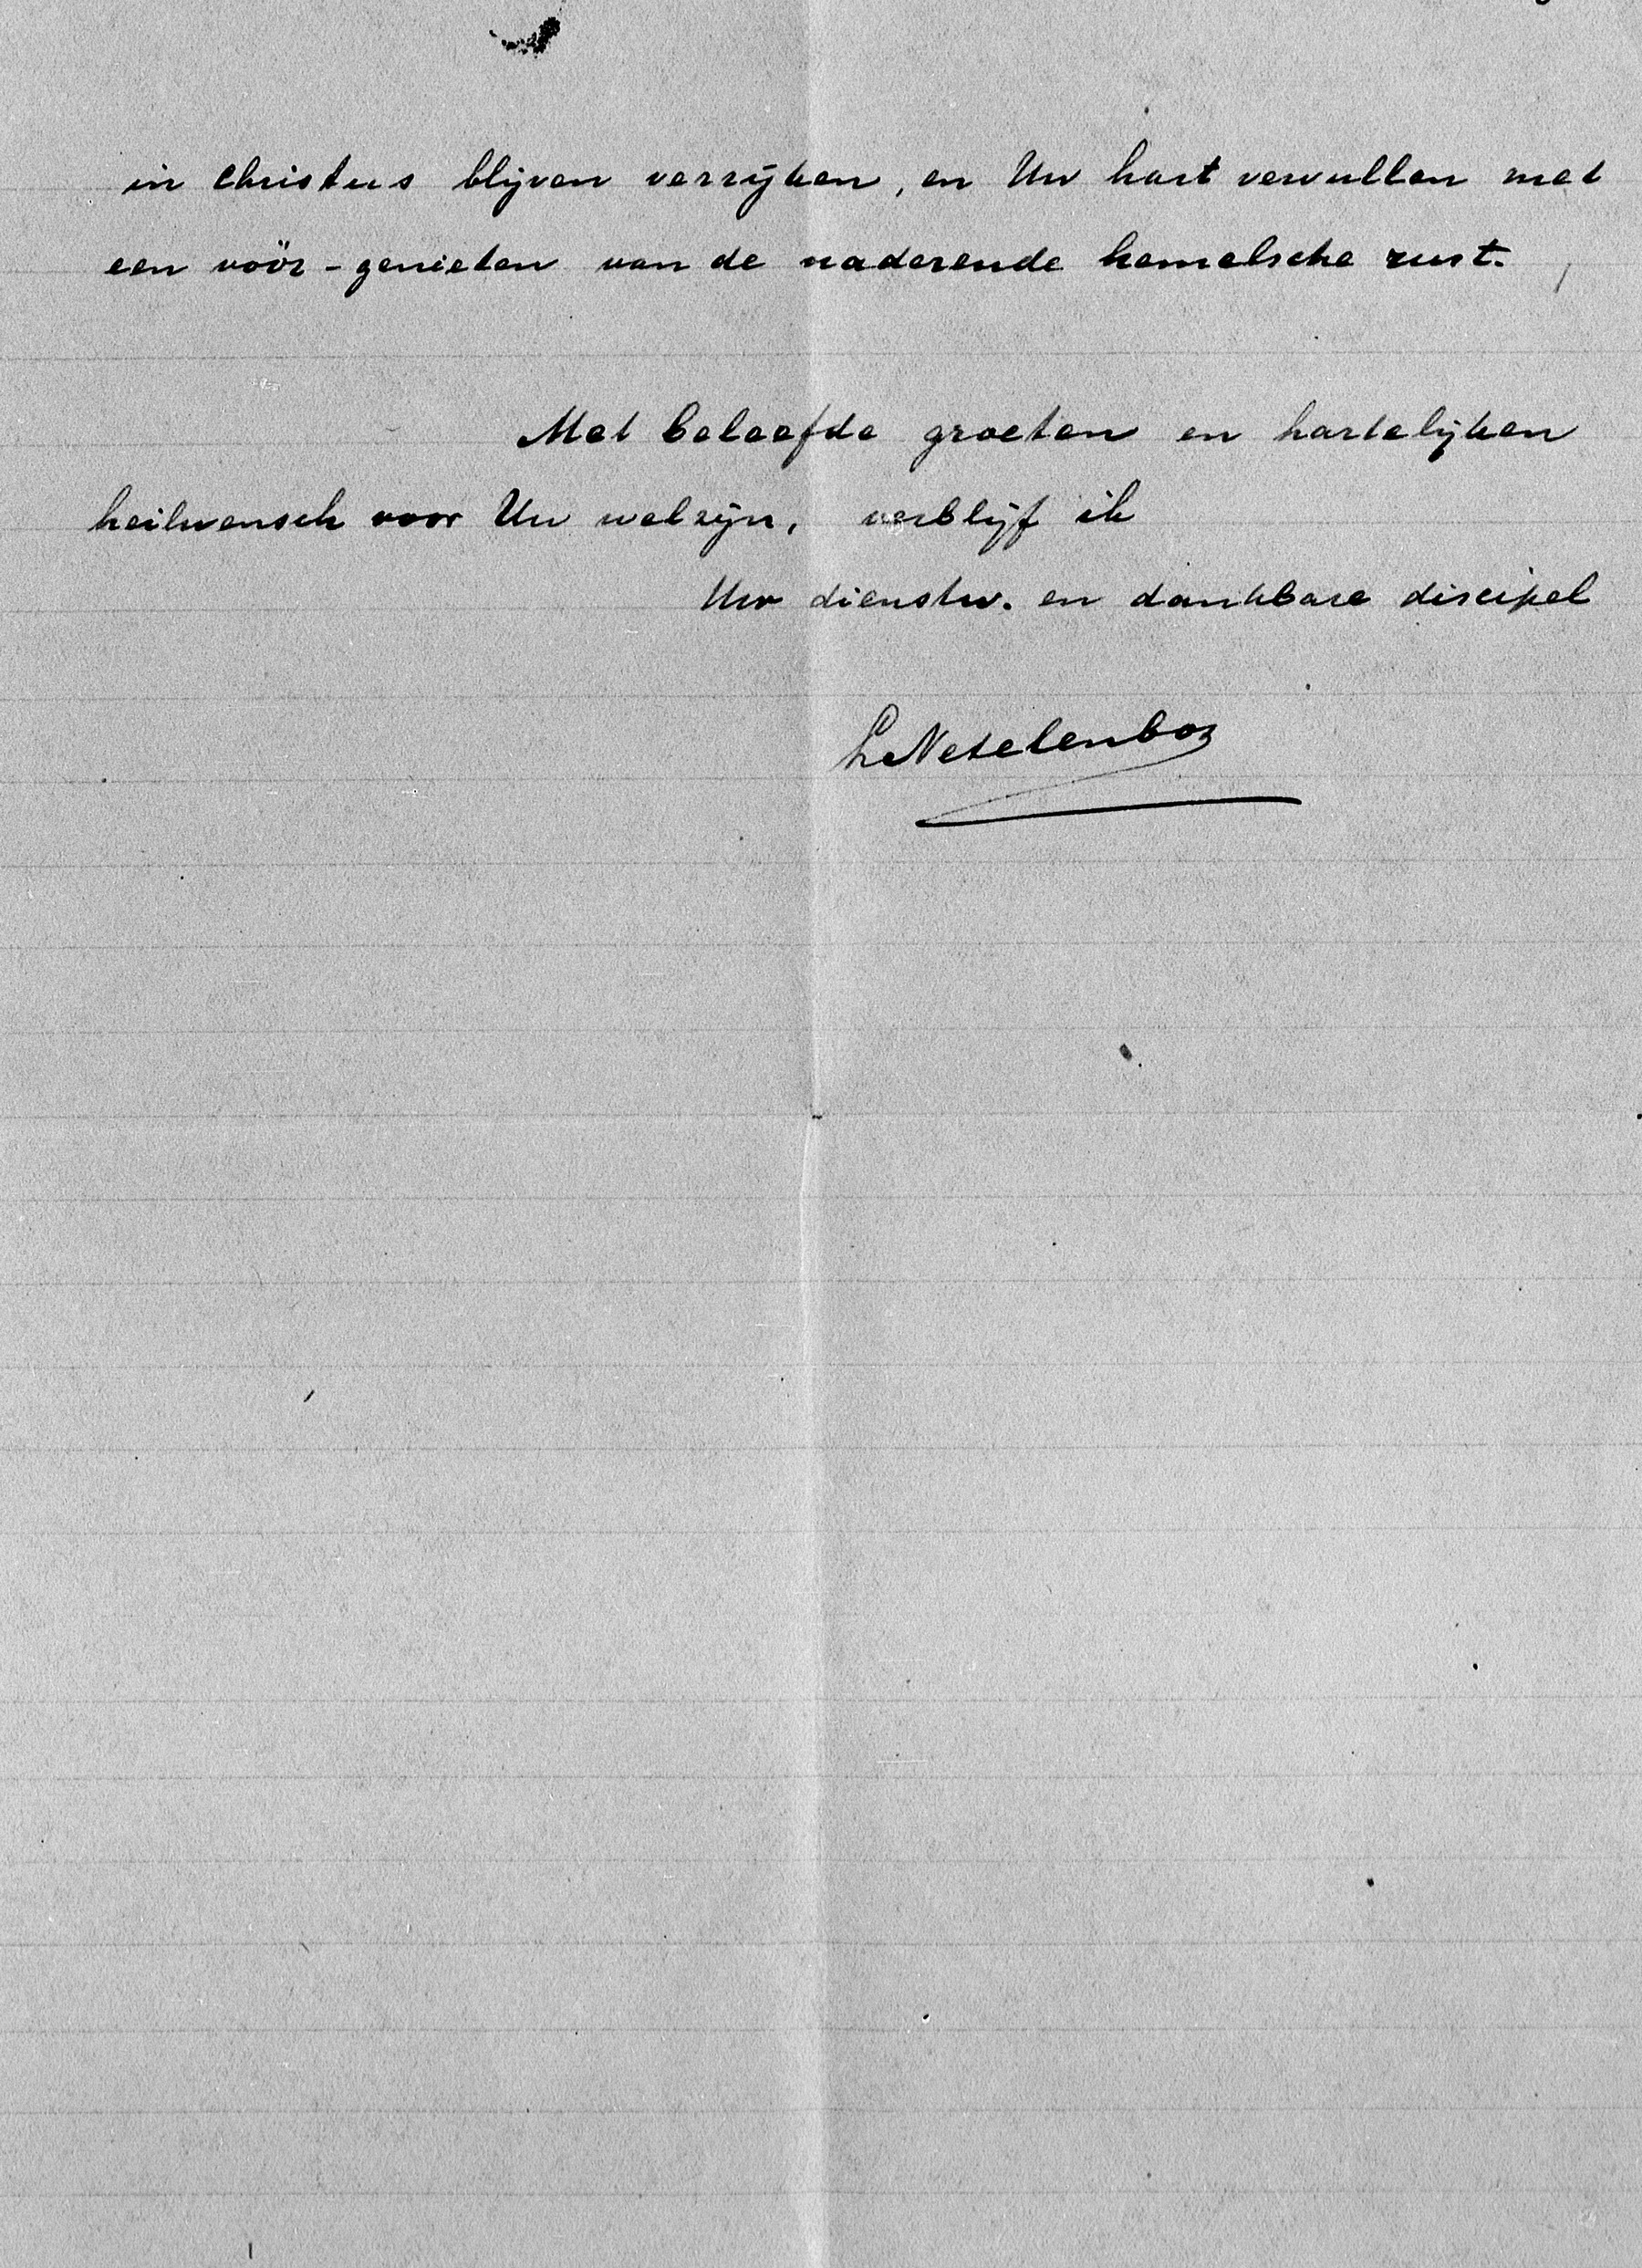 in Christus blijven verrijken, en Uw hart vervullen met
een vóór-genieten van de naderende hemelsche rust.
Met beleefde groeten en hartelijken
heilwensch voor Uw welzijn, verblijf ik
Uw dienstw. en dankbare discipel
Netelenbos